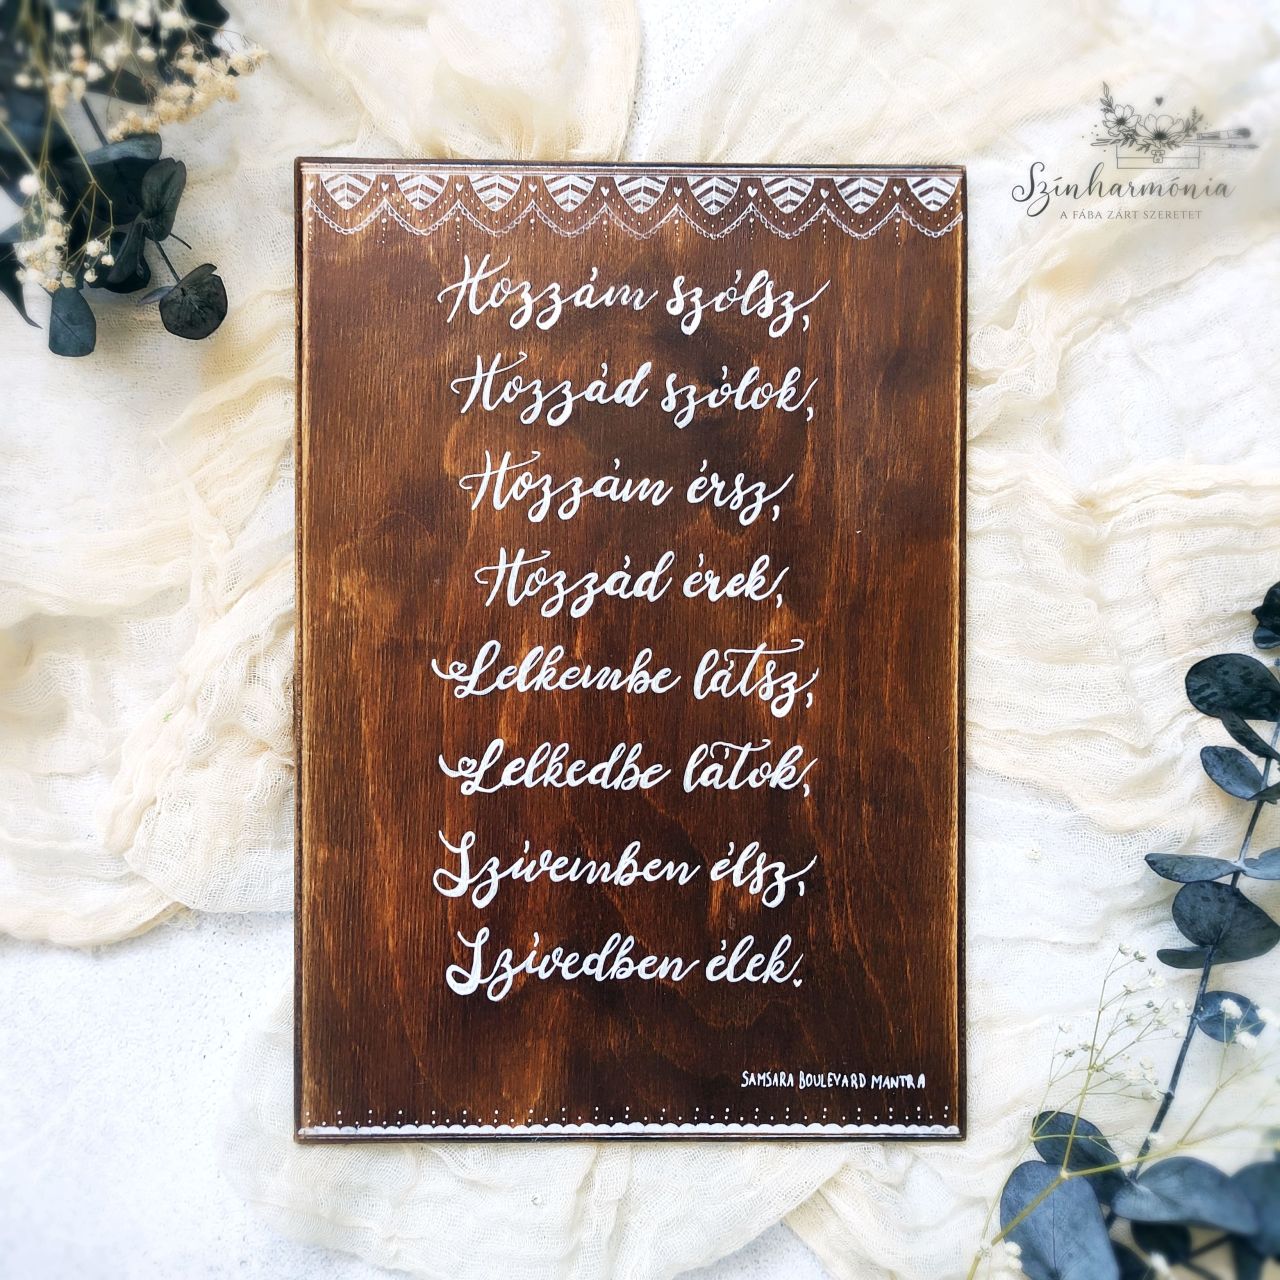 Színharmónia
A FÁBA ZÁRT SZERETET
Hozzám szólsz,
Hozzád szólok,
Hozzám érsz,
Hozzád érek,
Lelkembe látsz,
Lelkedbe látok,
Szívemben élsz,
Szívedben élek.
SAMSARA BOULEVARD MANTRA